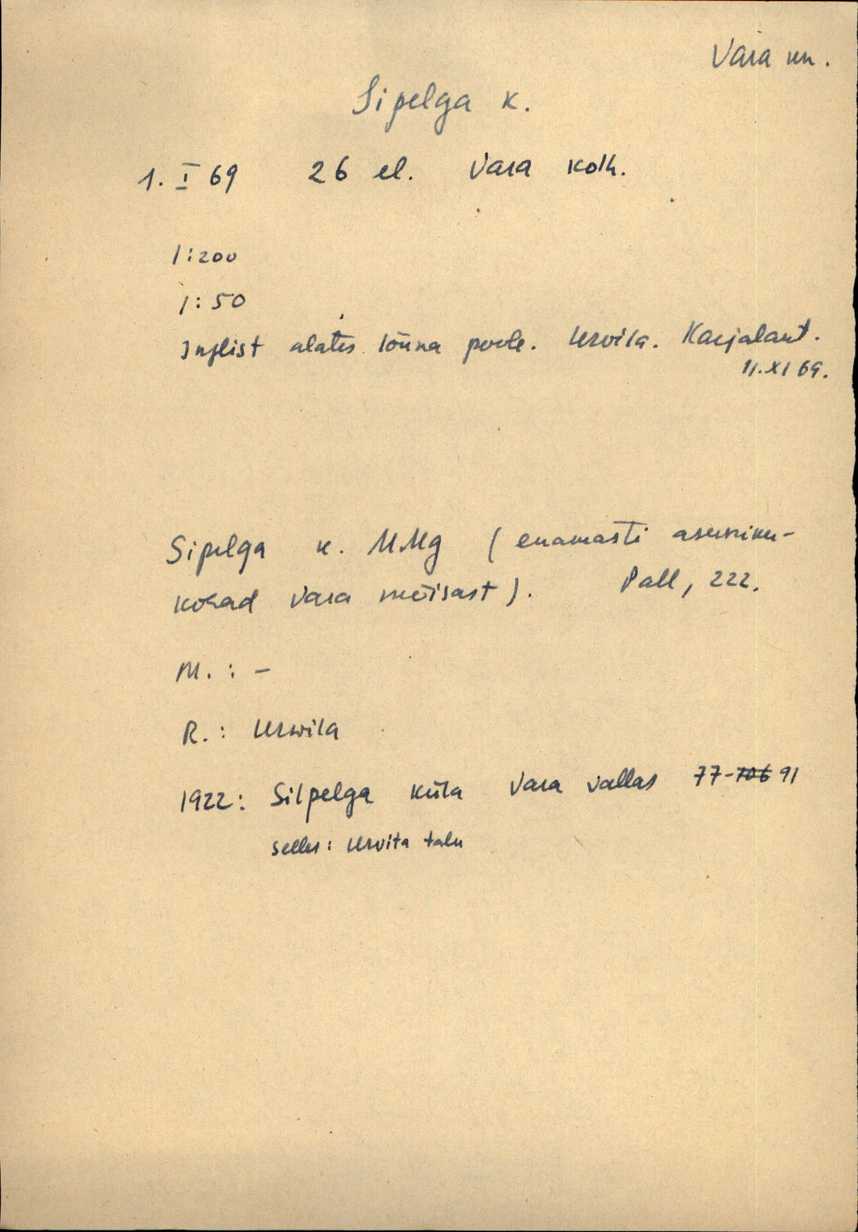 Vara kn.
Sipelga k.
1. I 69 26 el. Vara kolh.
1:200
1:50
Inglist alates lõuna poole. Urvita. Karjalant.
11.XI 69.
Sipelga k. MMg (enamasti asuniku-
kohad Vara mõisast). Pall, 222.
M. : –
R. : Urwila
1922: Silpelga küla Vara vallas 77-106 91
selles: Urvita talu